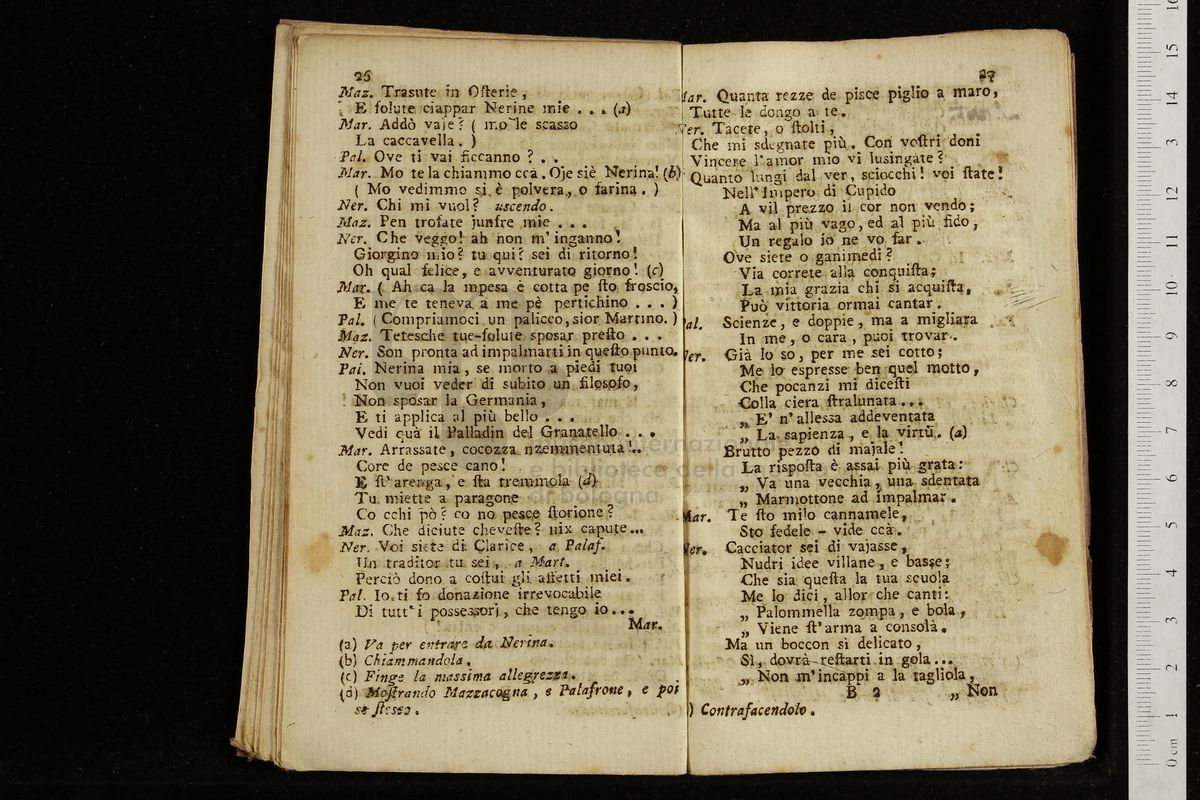 26
Maz. Trasute in Osterie,
E solute ciappar Nerine mie . . . (a)
Mar. Addò vaje? ( mo le scasso
La caccavella. )
Pal. Ove ti vai ficcanno ? . .
Mar. Mo te la chiammo ccà. Oje siè Nerina! (b)
( Mo vedimmo si è polvera, o farina. )
Ner. Chi mi vuol? uscendo.
Maz. Pen trofate junfre mie . . .
Ner. Che veggo! ah non m'inganno!
Giorgino mio? tu qui? sei di ritorno!
Oh qual felice, e avventurato giorno! (c)
Mar. ( Ah ca la mpesa è cotta pe sto froscio,
E me te teneva a me pè pertichino . . . )
Pal. ( Compriamoci un palicco, sior Martino. )
Maz. Tetesche tue solute sposar presto . . .
Ner. Son pronta ad impalmarti in questo punto.
Pal. Nerina mia, se morto a piedi tuoi
Non vuoi veder di subito un filosofo,
Non sposar la Germania,
E ti applica al più bello . . .
Vedi quà il Palladin del Granatello . . .
Mar. Arrassate, cocozza nzemmentuta!..
Core de pesce cano!
E st'arenga, e sta tremmola (d)
Tu miette a paragone
Co cchi pò? co no pesce storione?
Maz. Che diciute cheveste? nix capute...
Ner. Voi siete di Clarice, a Palaf.
Un traditor tu sei, a Mart.
Perciò dono a costui gli affetti miei.
Pal. Io ti fo donazione irrevocabile
Di tutt'i possessori, che tengo io...
Mar.
(a) Va per entrare da Nerina.
(b) Chiammandola.
(c) Finge la massima allegrezza.
(d) Mostrando Mazzacogna, e Palafrone, e poi
se stesso.
27
Mar. Quanta rezze de pisce piglio a maro,
Tutte le dongo a te.
Ner. Tacete, o stolti,
Che mi sdegnate più. Con vostri doni
Vincere l'amor mio vi lusingate?
Quanto lungi dal ver, sciocchi! voi state!
Nell'Impero di Cupido
A vil prezzo il cor non vendo;
Ma al più vago, ed al più fido,
Un regalo io ne vo far.
Ove siete o ganimedi?
Via correte alla conquista;
La mia grazia chi si acquista,
Può vittoria ormai cantar.
Pal. Scienze, e doppie, ma a migliara
In me, o cara, puoi trovar.
Ner. Già lo so, per me sei cotto;
Me lo espresse ben quel motto,
Che pocanzi mi dicesti
Colla ciera stralunata...
„ E' n'allessa addeventata
„ La sapienza, e la virtù. (a)
Brutto pezzo di majale!
La risposta è assai più grata:
„ Va una vecchia, una sdentata
„ Marmottone ad impalmar.
Mar. Te sto milo cannamele,
Sto fedele - vide ccà.
Ner. Cacciator sei di vajasse,
Nudri idee villane, e basse;
Che sia questa la tua scuola
Me lo dici, allor che canti:
„ Palommella zompa, e bola,
„ Viene st'arma a consolà.
Ma un boccon sì delicato,
Sì, dovrà restarti in gola...
„ Non m'incappi a la tagliola,
B 2 „ Non
) Contrafacendolo.